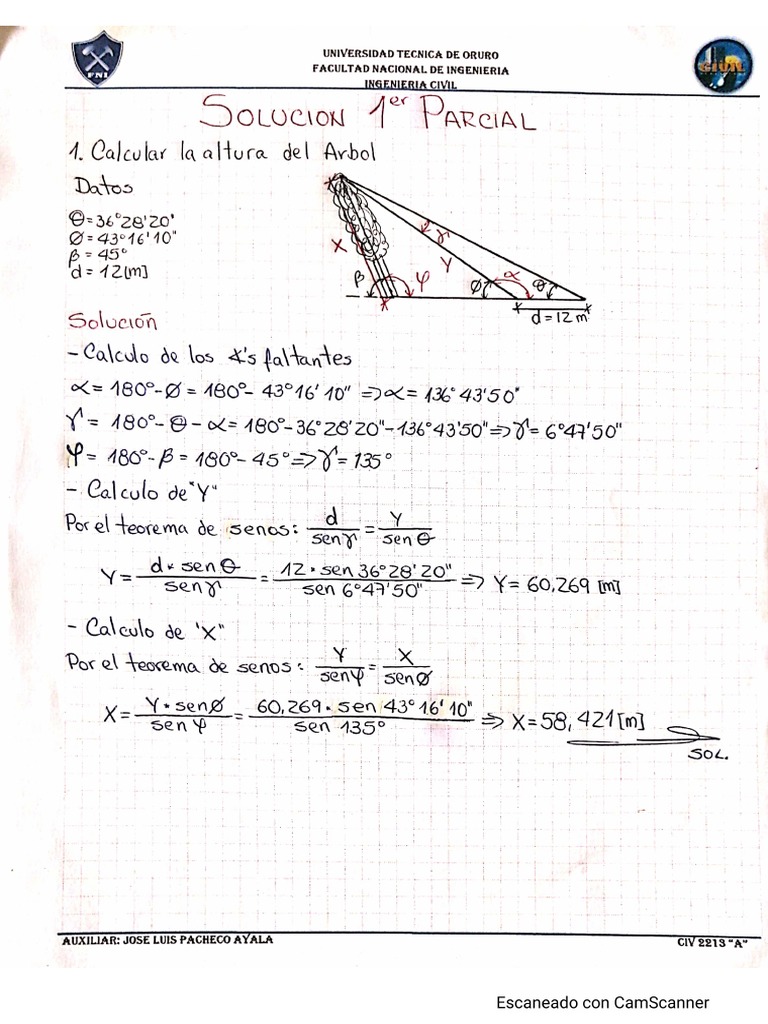 FNI
UNIVERSIDAD TECNICA DE ORURO
FACULTAD NACIONAL DE INGENIERIA
INGENIERIA CIVIL
CIVIL
SOLUCION 1er PARCIAL
1. Calcular la altura del Arbol
Datos
θ=36°28'20"
Ø=43°16'10"
β=45°
d=12[m]
X β φ γ Y Ø α θ
d=12m
Solución
- Calculo de los ∡'s faltantes
α=180°-Ø=180°-43°16'10"⇒α=136°43'50"
γ=180°-θ-α=180°-36°28'20"-136°43'50"⇒γ=6°47'50"
φ=180°-β=180°-45°⇒γ=135°
- Calculo de "Y"
Por el teorema de senos: d/senγ = Y/senθ
Y= d*senθ/senγ = 12*sen 36°28'20"/sen 6°47'50" ⇒ Y=60,269 [m]
- Calculo de 'X"
Por el teorema de senos: Y/senφ = X/senØ
X= Y*senØ/senφ = 60,269*sen 43°16'10"/sen 135° ⇒ X=58,421[m]
SOL.
AUXILIAR: JOSE LUIS PACHECO AYALA
CIV 2213 "A"
Escaneado con CamScanner